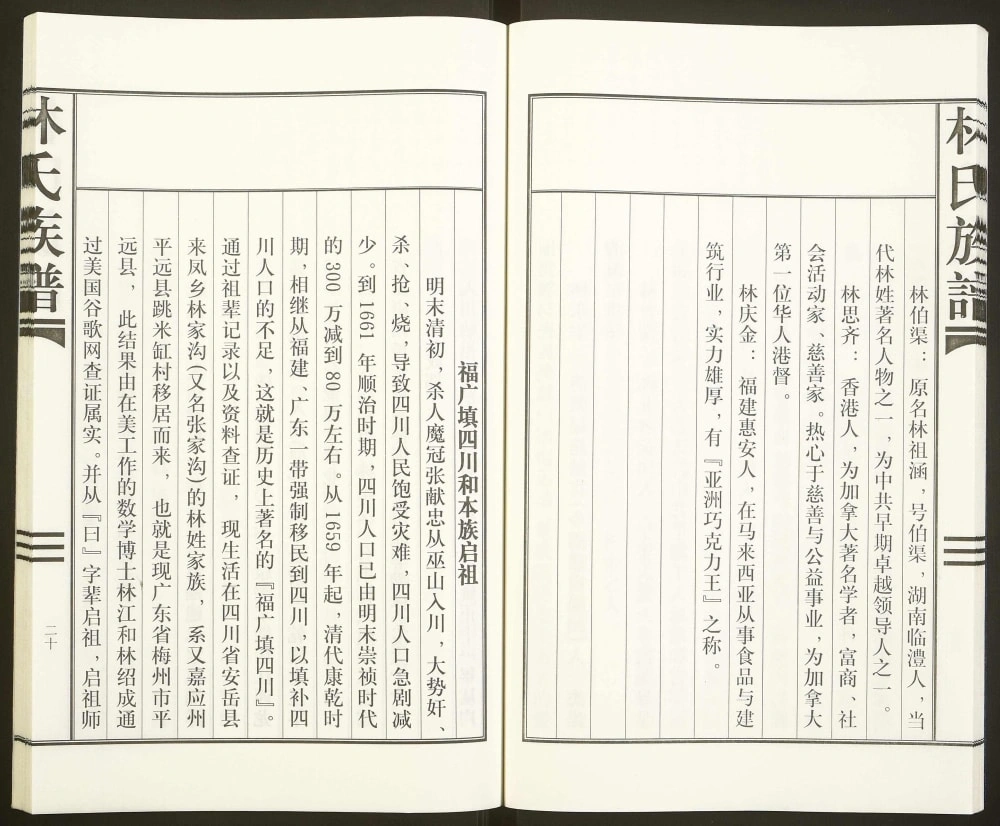 林氏族譜
林伯渠：原名林祖涵，号伯渠，湖南临澧人，当
代林姓著名人物之一，为中共早期卓越领导人之一。
林思齐：香港人，为加拿大著名学者，富商、社
会活动家、慈善家。热心于慈善与公益事业，为加拿大
第一位华人港督。
林庆金：福建惠安人，在马来西亚从事食品与建
筑行业，实力雄厚，有『亚洲巧克力王』之称。
福广填四川和本族启祖
明末清初，杀人魔冠张献忠从巫山入川，大势奸、
杀、抢、烧，导致四川人民饱受灾难，四川人口急剧减
少。到1661年顺治时期，四川人口已由明末崇祯时代
的300万减到80万左右。从1659年起，清代康乾时
期，相继从福建、广东一带强制移民到四川，以填补四
川人口的不足，这就是历史上著名的『福广填四川』。
通过祖辈记录以及资料查证，现生活在四川省安岳县
来凤乡林家沟(又名张家沟)的林姓家族，系又嘉应州
平远县跳米缸村移居而来，也就是现广东省梅州市平
远县，此结果由在美工作的数学博士林江和林绍成通
过美国谷歌网查证属实。并从『曰』字辈启祖，启祖师
林氏族譜
二十